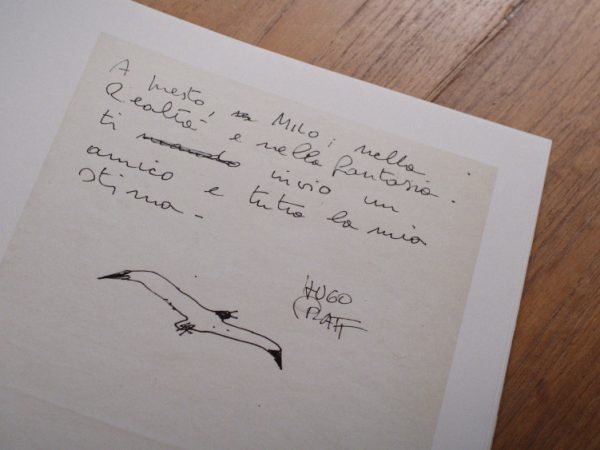 A presto, Milo; nella
Realtà e nella fantasia.
ti mando invio un
amico e tutta la mia
stima.
HUGO
PRATT